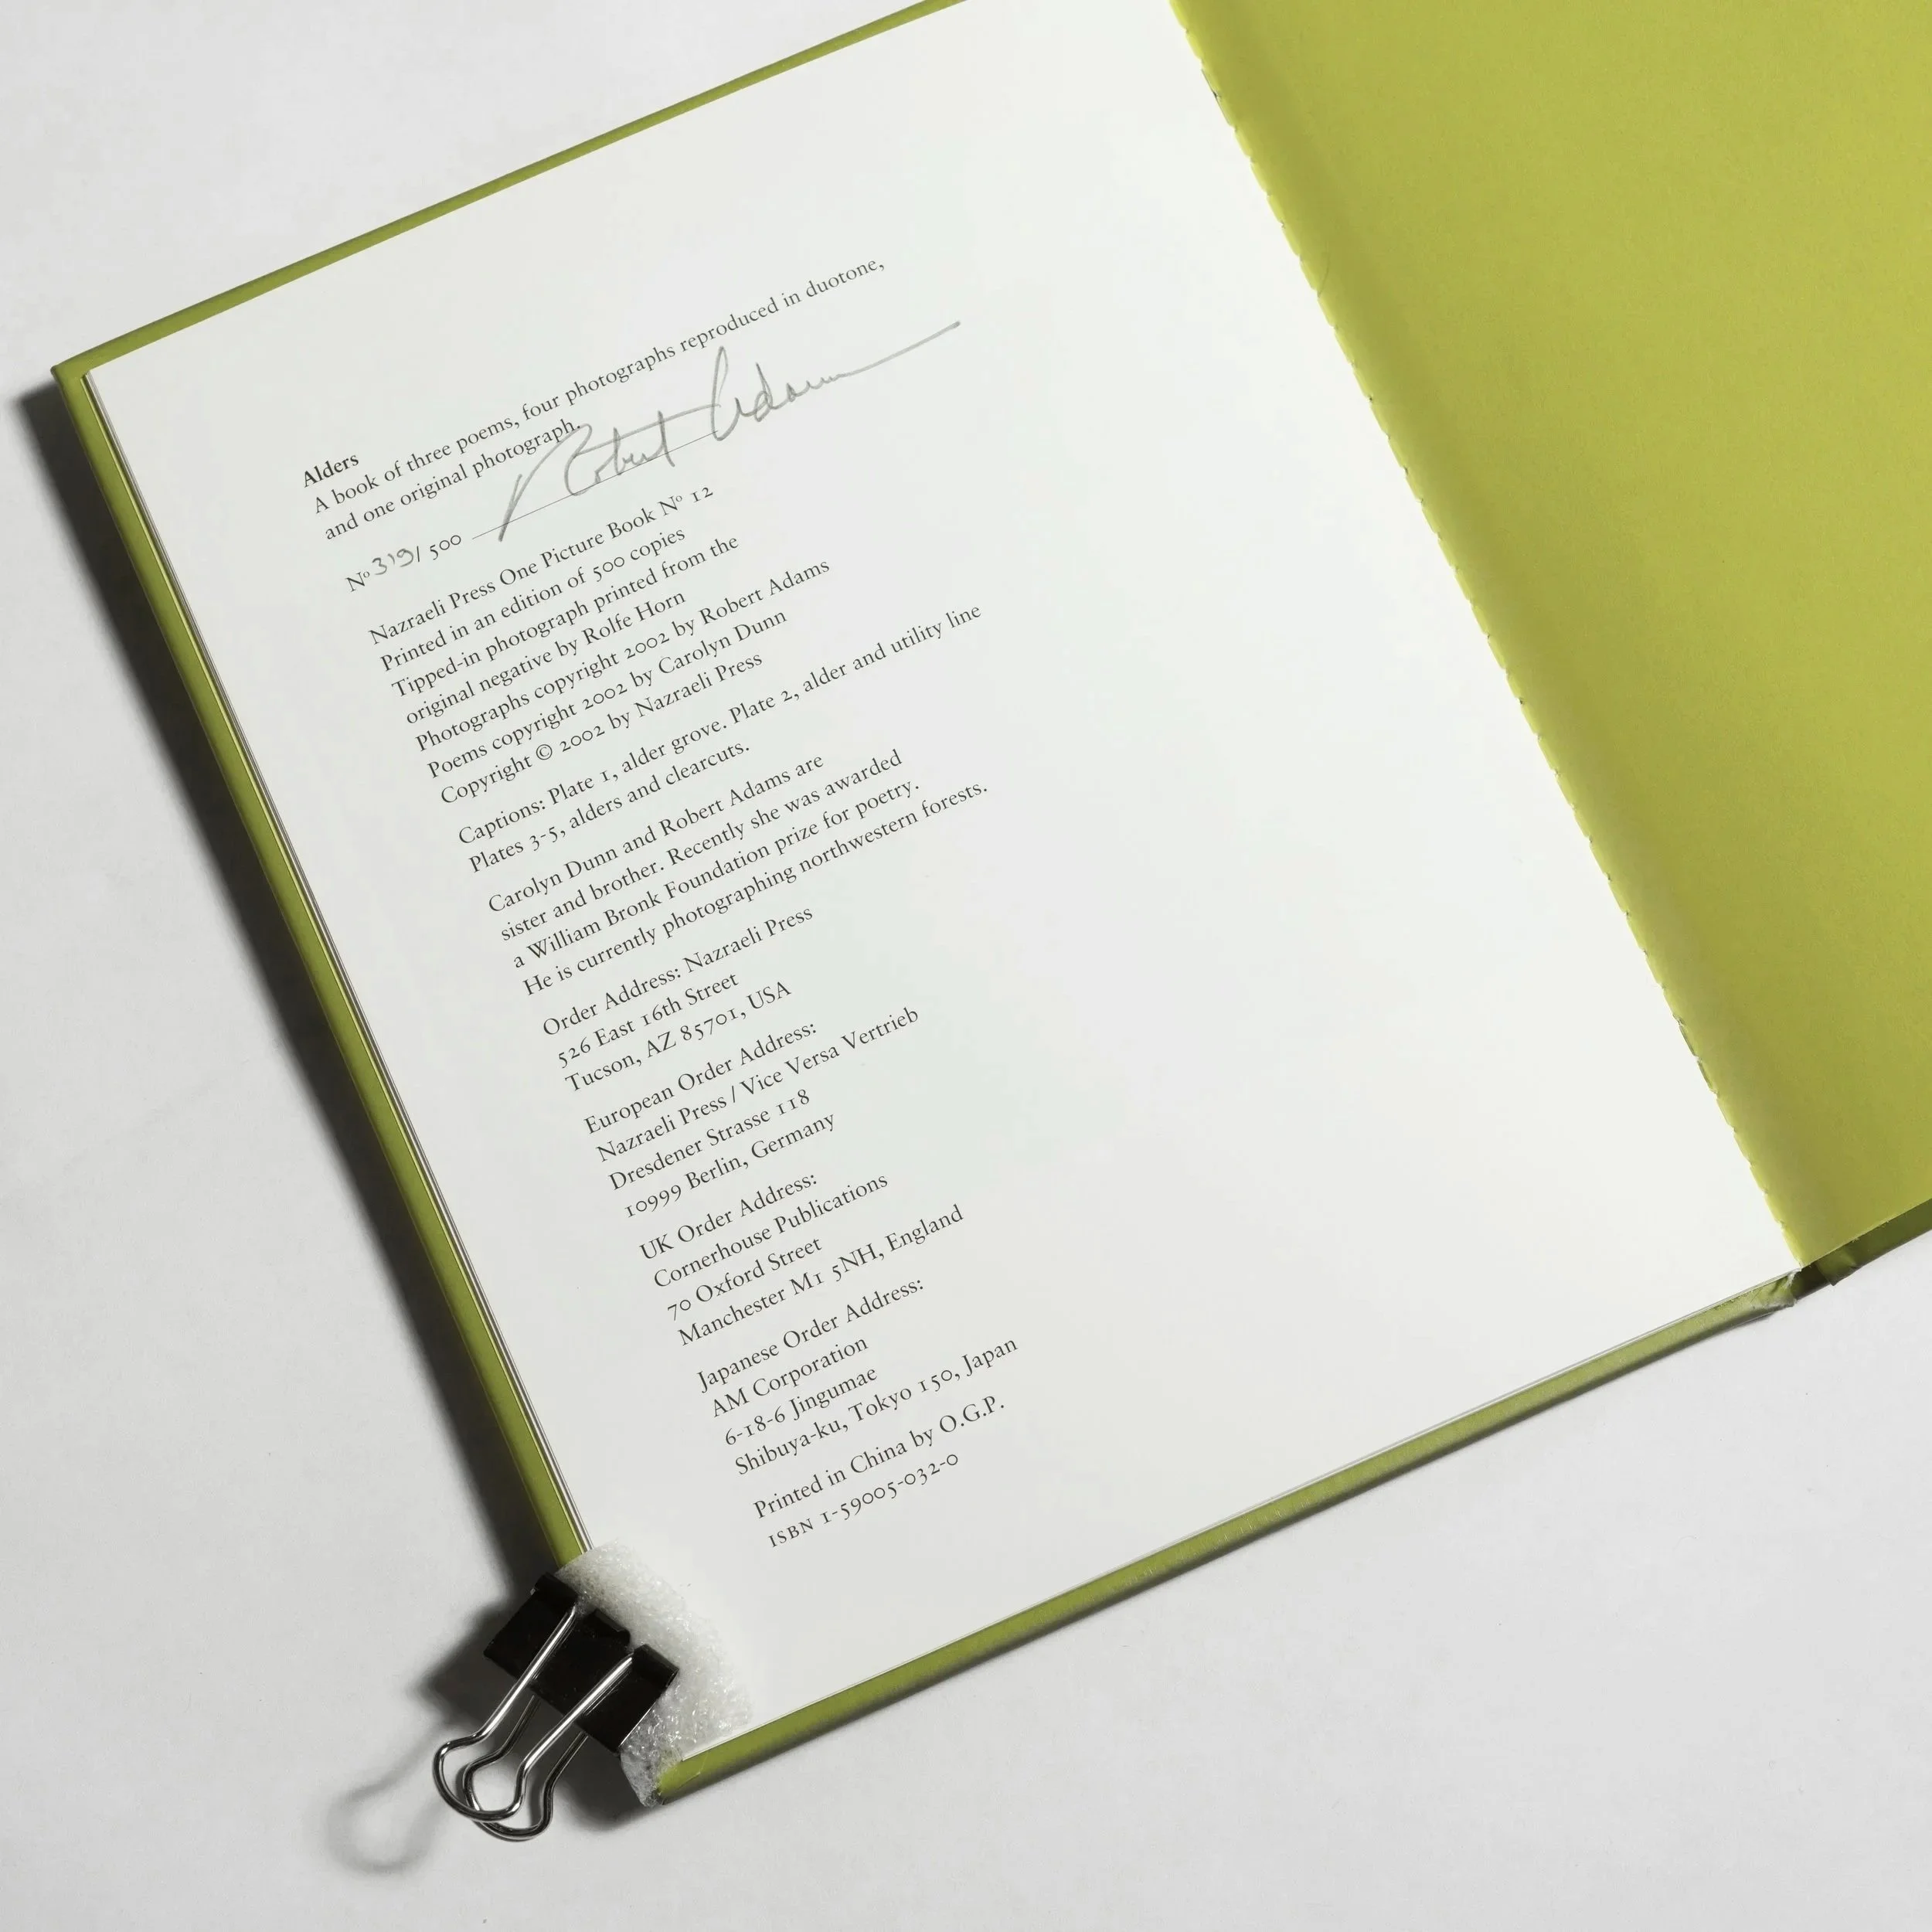 Alders
A book of three poems, four photographs reproduced in duotone,
and one original photograph.
Nº 319/ 500 Robert Adams
Nazraeli Press One Picture Book Nº 12
Printed in an edition of 500 copies
Tipped-in photograph printed from the
original negative by Rolfe Horn
Photographs copyright 2002 by Robert Adams
Poems copyright 2002 by Carolyn Dunn
Copyright © 2002 by Nazraeli Press
Captions: Plate 1, alder grove. Plate 2, alder and utility line
Plates 3-5, alders and clearcuts.
Carolyn Dunn and Robert Adams are
sister and brother. Recently she was awarded
a William Bronk Foundation prize for poetry.
He is currently photographing northwestern forests.
Order Address: Nazraeli Press
526 East 16th Street
Tucson, AZ 85701, USA
European Order Address:
Nazraeli Press / Vice Versa Vertrieb
Dresdener Strasse 118
10999 Berlin, Germany
UK Order Address:
Cornerhouse Publications
70 Oxford Street
Manchester M1 5NH, England
Japanese Order Address:
AM Corporation
6-18-6 Jingumae
Shibuya-ku, Tokyo 150, Japan
Printed in China by O.G.P.
ISBN 1-59005-032-0